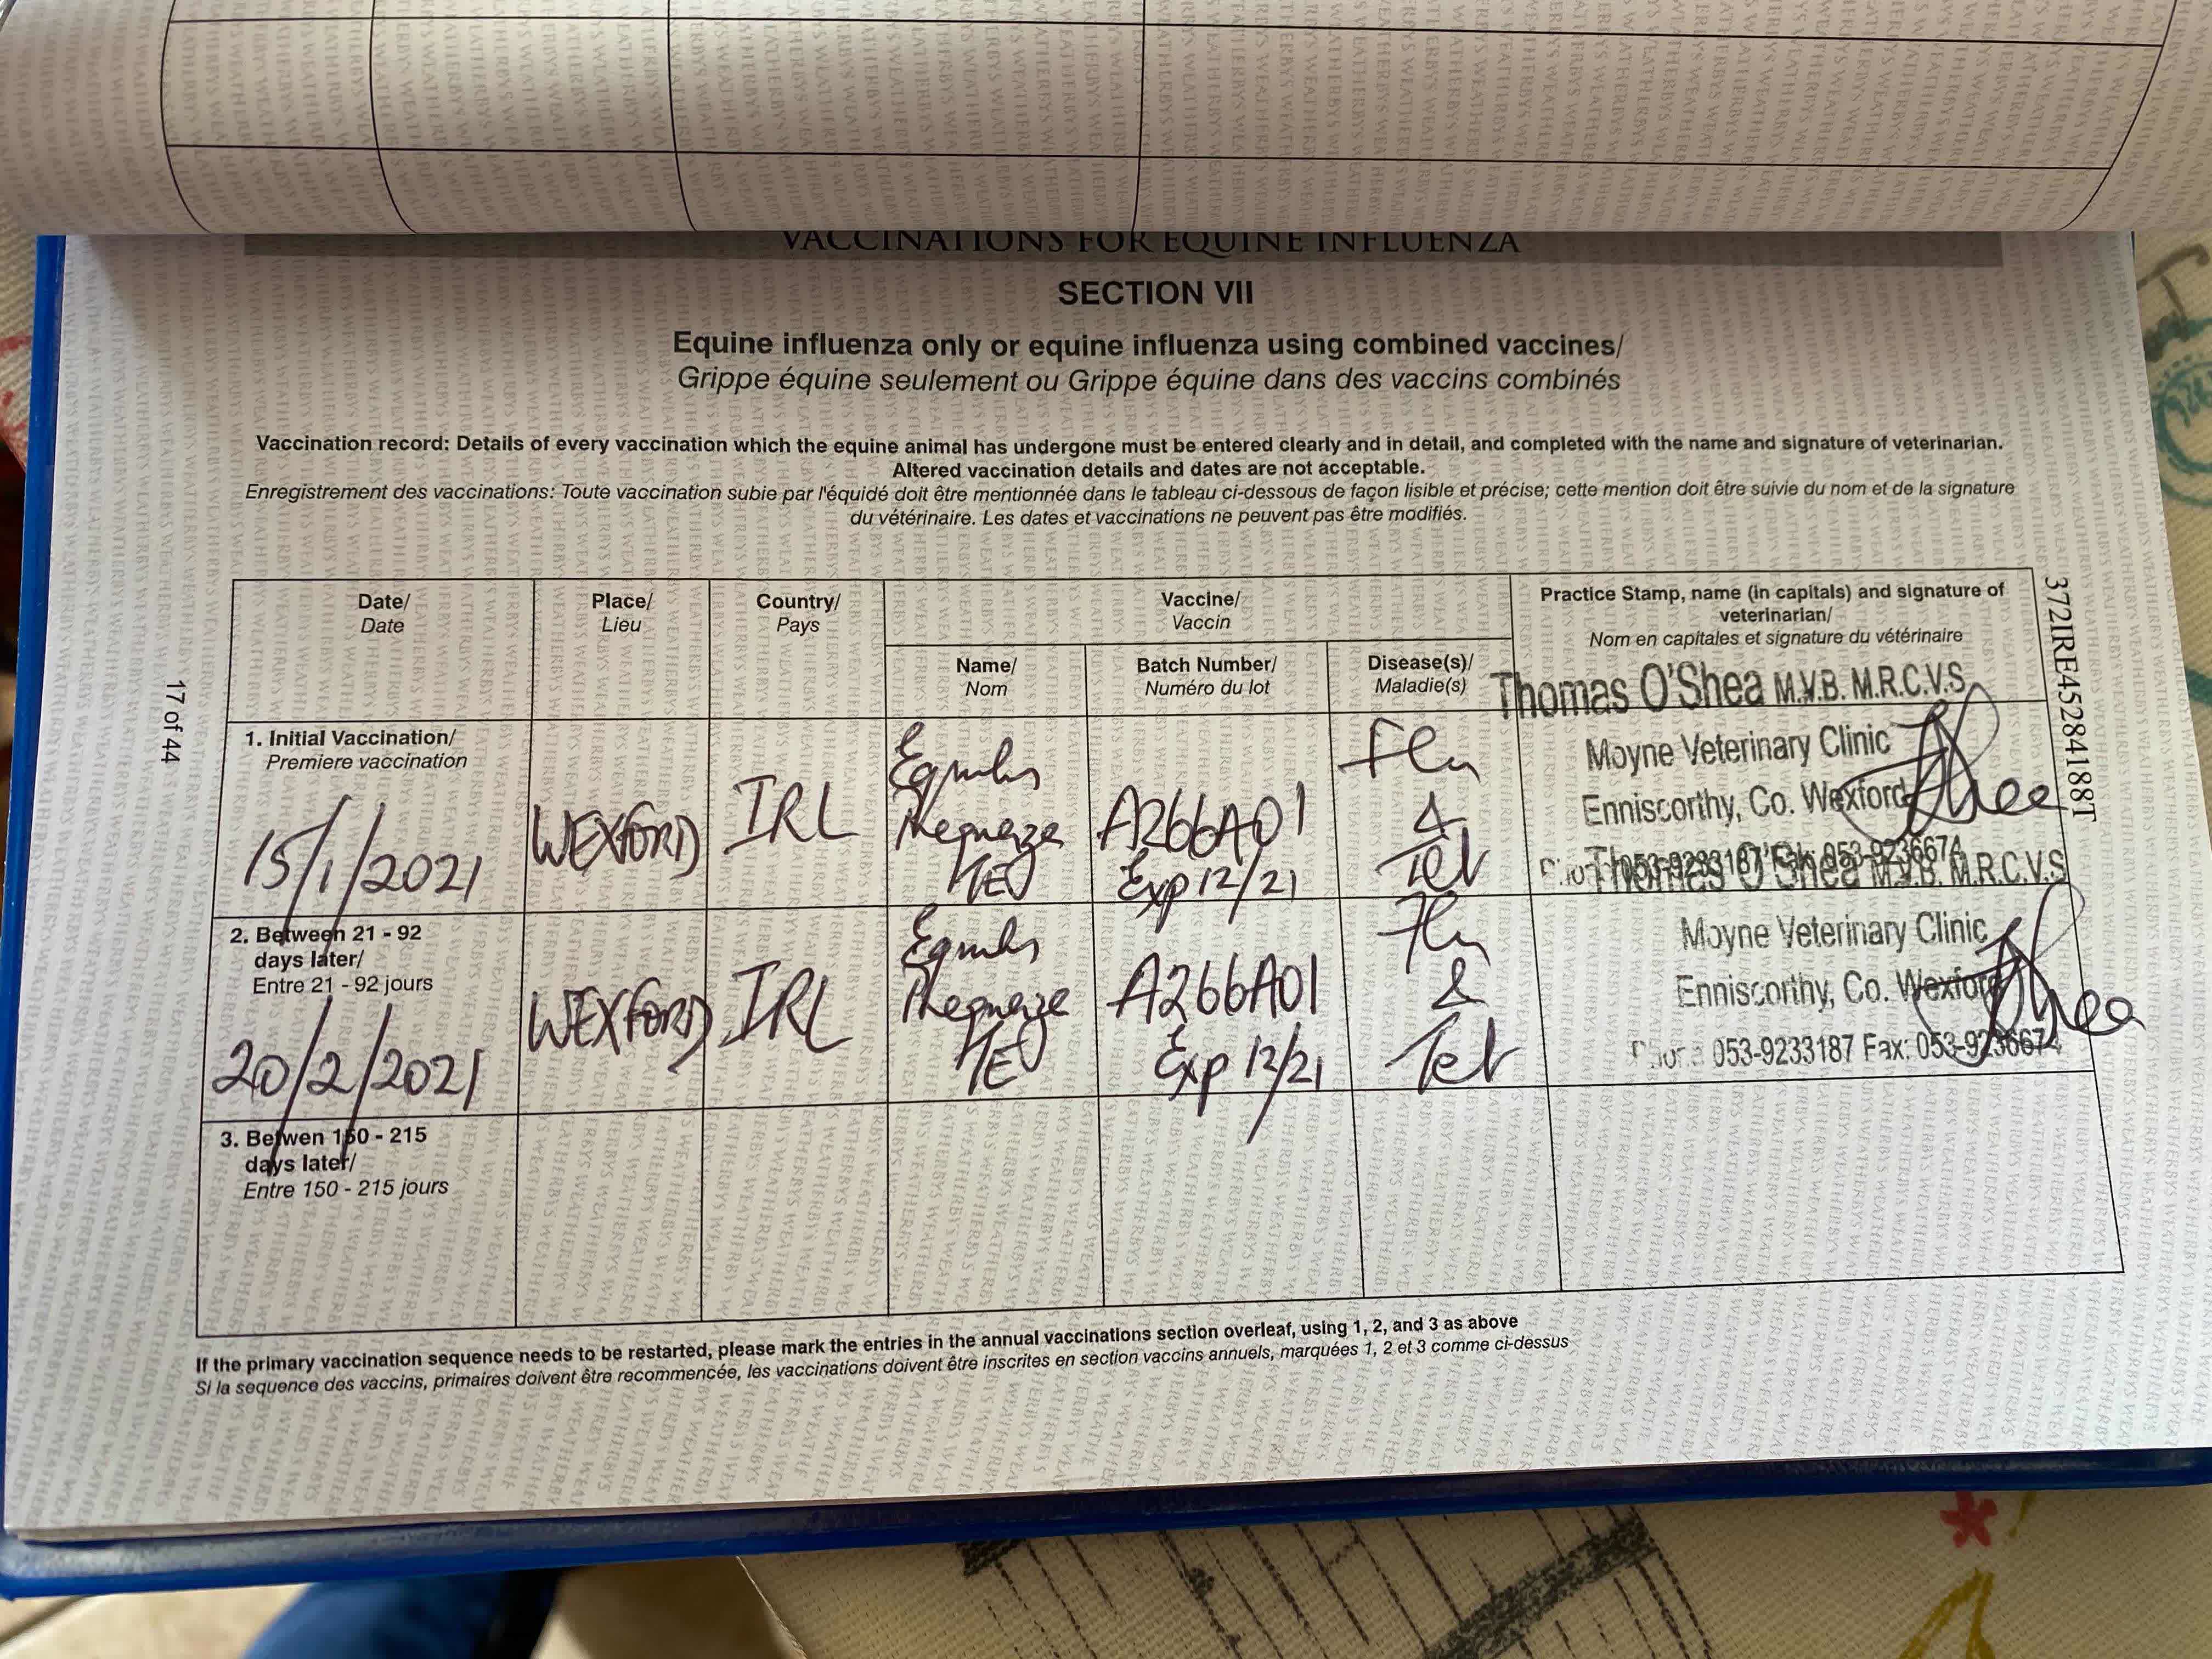 VACCINATIONS FOR EQUINE INFLUENZA
SECTION VII
Equine influenza only or equine influenza using combined vaccines/
Grippe équine seulement ou Grippe équine dans des vaccins combinés
Vaccination record: Details of every vaccination which the equine animal has undergone must be entered clearly and in detail, and completed with the name and signature of veterinarian.
Altered vaccination details and dates are not acceptable.
Enregistrement des vaccinations: Toute vaccination subie par l'équidé doit être mentionnée dans le tableau ci-dessous de façon lisible et précise; cette mention doit être suivie du nom et de la signature
du vétérinaire. Les dates et vaccinations ne peuvent pas être modifiés.
Date/
Date
Place/
Lieu
Country/
Pays
Vaccine/
Vaccin
Name/
Nom
Batch Number/
Numéro du lot
Disease(s)/
Maladie(s)
Practice Stamp, name (in capitals) and signature of
veterinarian/
Nom en capitales et signature du vétérinaire
1. Initial Vaccination/
Premiere vaccination
15/1/2021
WEXFORD
IRL
A266A01
Exp 12/21
Flu
&
Tet
Thomas O'Shea M.V.B. M.R.C.V.S
Moyne Veterinary Clinic
Enniscorthy, Co. Wexford
053-9233187 Fax: 053-9236674
2. Between 21 - 92
days later/
Entre 21 - 92 jours
20/2/2021
WEXFORD
IRL
A266A01
Exp 12/21
Flu
&
Tet
Thomas O'Shea M.V.B. M.R.C.V.S
Moyne Veterinary Clinic
Enniscorthy, Co. Wexford
Phone 053-9233187 Fax: 053-9236674
3. Betwen 150 - 215
days later/
Entre 150 - 215 jours
If the primary vaccination sequence needs to be restarted, please mark the entries in the annual vaccinations section overleaf, using 1, 2, and 3 as above
Si la sequence des vaccins, primaires doivent être recommencée, les vaccinations doivent être inscrites en section vaccins annuels, marquées 1, 2 et 3 comme ci-dessus
17 of 44
372IRE45284188T
WEATHERBYS